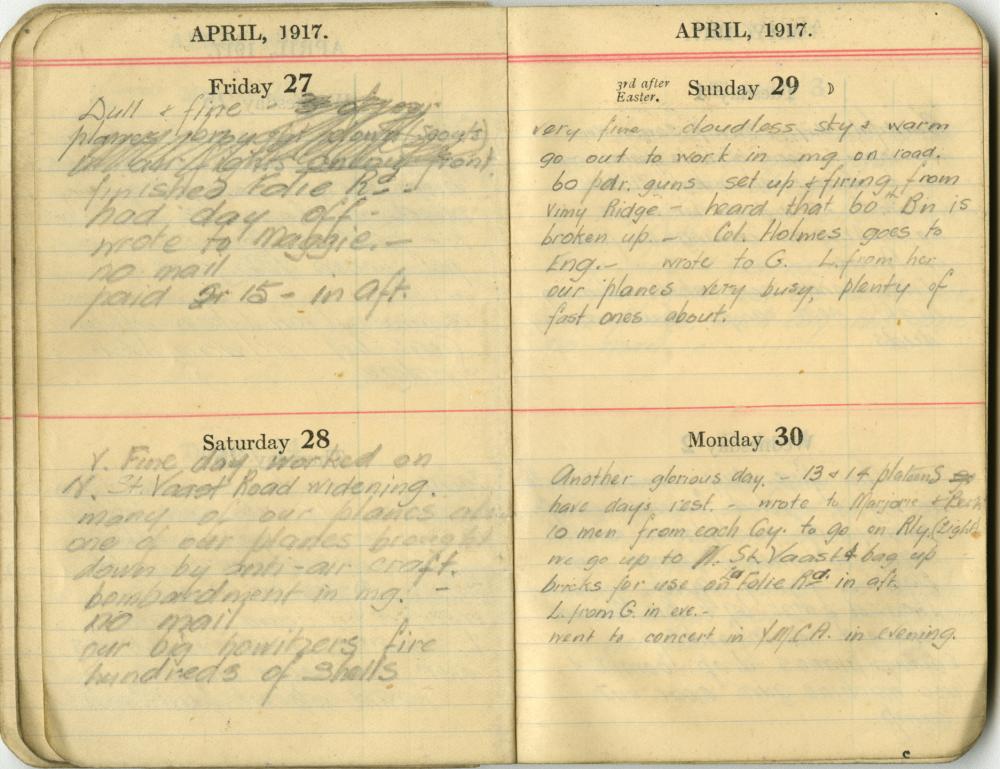 APRIL, 1917.
Friday 27
Dull & fine
planes brought down (Scouts)
in air fights on our front.
finished Folie Rd -
had day off -
wrote to Maggie. -
no mail
paid 15 - in aft.
Saturday 28
V. Fine day worked on
N. St. Vaast Road widening.
many of our planes
one of our planes brought
down by anti-air craft.
bombardment in mg. -
no mail
our big howitzers fire
hundreds of shells
APRIL, 1917.
3rd after
Easter. Sunday 29
very fine cloudless sky & warm
go out to work in mg on road.
60 pdr. guns set up & firing from
Vimy Ridge - heard that 60th Bn is
broken up. - Col. Holmes goes to
Eng. - wrote to G. L. from her
our planes very busy, plenty of
fast ones about.
Monday 30
Another glorious day. - 13 & 14 platoons
have days rest. - wrote to Marjorie &
10 men from each Coy. to go on Rly. (Light)
we go up to N. St. Vaast & bag up
bricks for use on la Folie Rd. in aft.
L. from G. in eve. -
went to concert in Y.M.C.A. in evening.